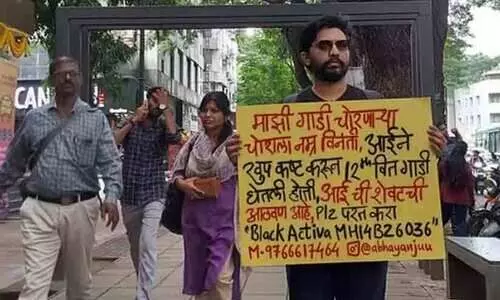 माझी गाडी चोरणाऱ्या
चोराला नम्र विनंती, आईने
खुप कष्ट करून 12th वित गाडी
घेतली होती, आई ची शेवटची
आठवण आहे, Plz परत करा
"Black Activa MH14BZ6036"
M-9766617464 @abhayanjuu
CAN